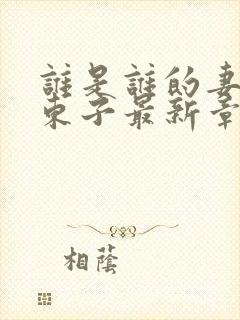 誰是誰的妻
東子最新章
相蔭